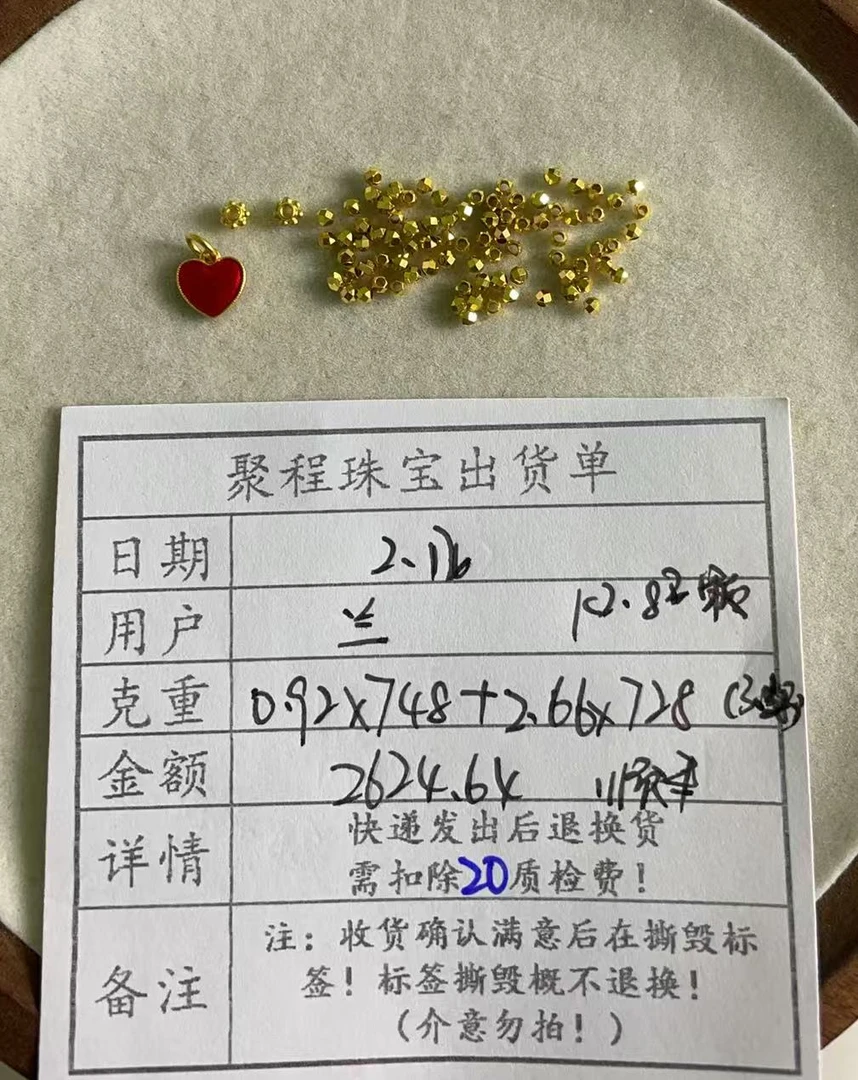 聚程珠宝出货单
日期 2.16
用户 兰
克重 0.92x748+2.66x728
金额 2624.64
详情 快递发出后退换货
需扣除20质检费!
备注 注：收货确认满意后在撕毁标
签!标签撕毁概不退换!
(介意勿拍!)